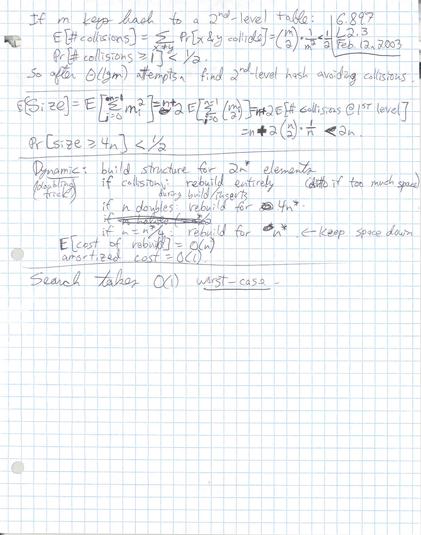 If m keys hash to a 2nd-level table:
6.897
L2.3
Feb. 12, 2003
E[# collisions] = Σ_{x≠y} Pr[x & y collide] = (m 2) · 1/m² < 1/2
Pr[# collisions ≥ 1] < 1/2.
So after O(lg n) attempts, find 2nd-level hash avoiding collisions.
E[Size] = E[Σ_{i=0}^{m-1} m_i²] = n + 2 E[Σ_{i=0}^{n-1} (m_i 2)] = n + 2 E[# collisions @ 1st level]
= n + 2 (n 2) · 1/n < 2n.
Pr[size ≥ 4n] < 1/2
Dynamic: build structure for 2n* elements
(doubling trick) if collision: rebuild entirely (ditto if too much space)
during build/inserts
if n doubles: rebuild for 4n*.
if n = n*/4: rebuild for n*. ← keep space down
E[cost of rebuild] = O(n)
amortized cost = O(1).
Search takes O(1) worst-case.